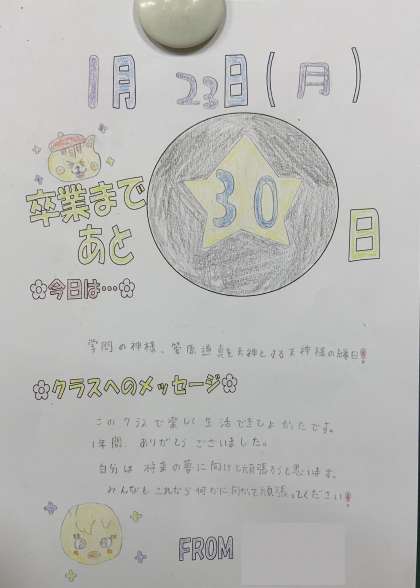 1月 23日(月)
卒業まで
あと
30
日
今日は…
学問の神様、菅原道真を天神とする天神様の縁日!
クラスへのメッセージ
このクラスで楽しく生活できてよかたです。
1年間、ありがとうございました。
自分は将来の夢に向けて頑張ろうと思います。
みんなもこれから何かに向かって頑張ってください!
FROM